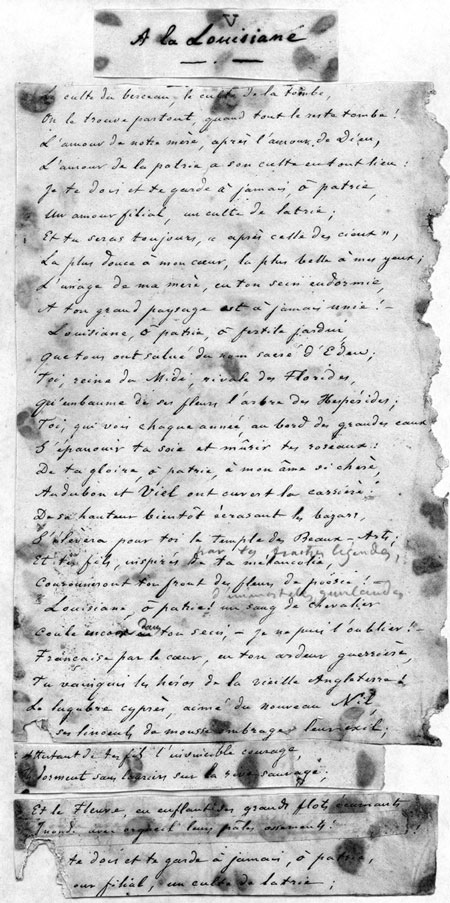 V
A la Louisiane
Le culte du berceau, le culte de la tombe,
On le trouve partout, quand tout le reste tombe !
L'amour de notre mère, après l'amour de Dieu,
L'amour de la patrie a son culte en tout lieu :
Je te dois et te garde à jamais, ô patrie,
Un amour filial, un culte de latrie ;
Et tu seras toujours, « après celle des cieux »,
La plus douce à mon cœur, la plus belle à mes yeux ;
L'image de ma mère, en ton sein endormie,
A ton grand paysage est à jamais unie ! —
Louisiane, ô patrie, ô fertile jardin,
Que tous ont salué du nom sacré d'Eden ;
Toi, reine du Midi, rivale des Florides,
Qu'embaume de ses fleurs l'arbre des Hespérides ;
Toi, qui vois chaque année au bord des grandes eaux
S'épanouir ta soie et mûrir tes roseaux :
De ta gloire, ô patrie, à mon âme si chère,
Audubon et Viel ont ouvert la carrière !
De sa hauteur bientôt écrasant les bazars,
S'élèvera pour toi le temple des Beaux-Arts ;
par tes légendes,
Et tes fils, inspirés de ta mélancolie,
Couronneront ton front des fleurs de poësie ! —
d'immortelles guirlandes
Louisiane, ô patrie ! un sang de chevalier
Coule encore dans ton sein, — je ne puis l'oublier ! —
Française par le cœur, en ton ardeur guerrière,
Tu vainquis les héros de la vieille Angleterre !
Le lugubre cyprès, aimé du nouveau
ses linceuls de mousse ombrage leur exil ;
Attestant de tes fils l'invincible courage,
dorment sans lauriers sur la rive sauvage ;
Et le Fleuve, en enflant ses grands flots écumants
avec orgueil leurs pâles ossements !
te dois et te garde à jamais, ô patrie,
our filial, un culte de latrie ;